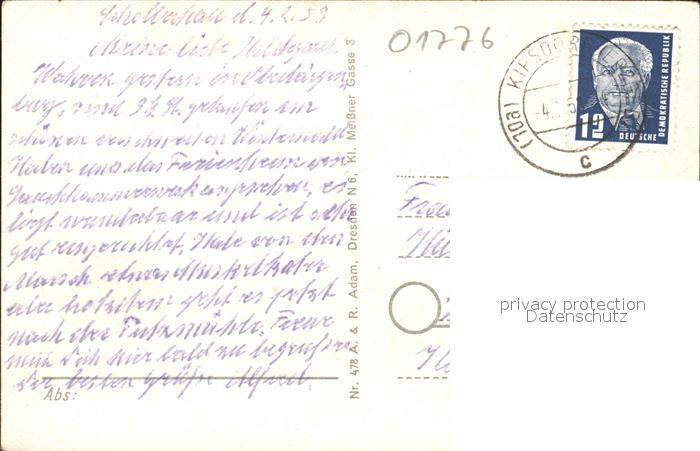 Schellerhau d. 4.2.53
Meine liebe Hildegard.
Waren gestern in Oberbärenburg,
sind 3½ St. gelaufen im
schönen verschneiten Winterwald.
Haben uns das Ferienheim vom
angesehen, es
liegt wunderbar und ist sehr
gut eingerichtet. Habe von dem
Marsch etwas Muskelkater
aber trotzdem geht es jetzt
nach der Putzmühle. Freue
mich Dich hier bald zu begrüßen
Die besten Grüße Alfred.
Abs:
Nr. 478 A. & R. Adam, Dresden N 6, Kl. Meißner Gasse 3
01776
(10a) KIPSDORF
4.
c
12
DEUTSCHE
DEMOKRATISCHE REPUBLIK
privacy protection
Datenschutz